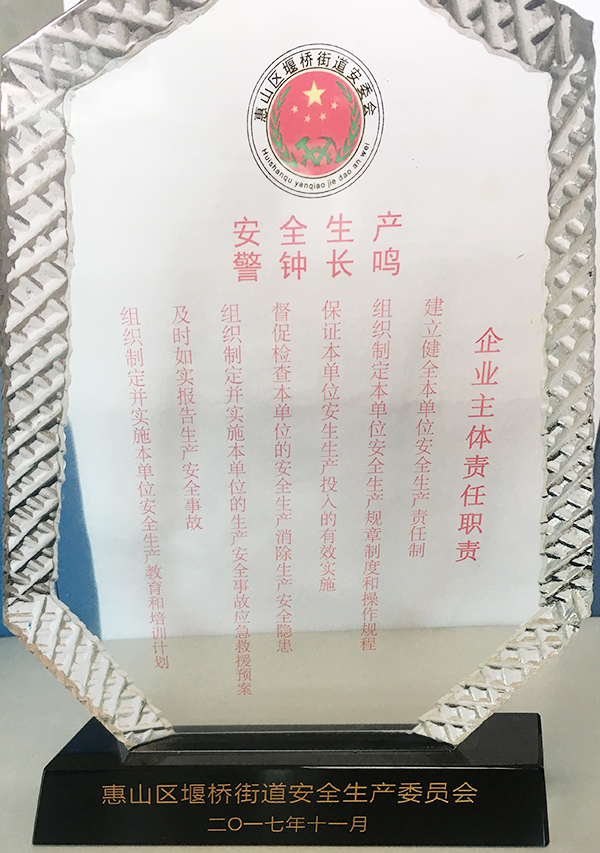 惠山区堰桥街道安委会
Huishanqu yanqiao jie dao an wei
安全生产
警钟长鸣
企业主体责任职责
建立健全本单位安全生产责任制
组织制定本单位安全生产规章制度和操作规程
保证本单位安生生产投入的有效实施
督促检查本单位的安全生产消除生产安全隐患
组织制定并实施本单位的生产安全事故应急救援预案
及时如实报告生产安全事故
组织制定并实施本单位安全生产教育和培训计划
惠山区堰桥街道安全生产委员会
二〇一七年十一月